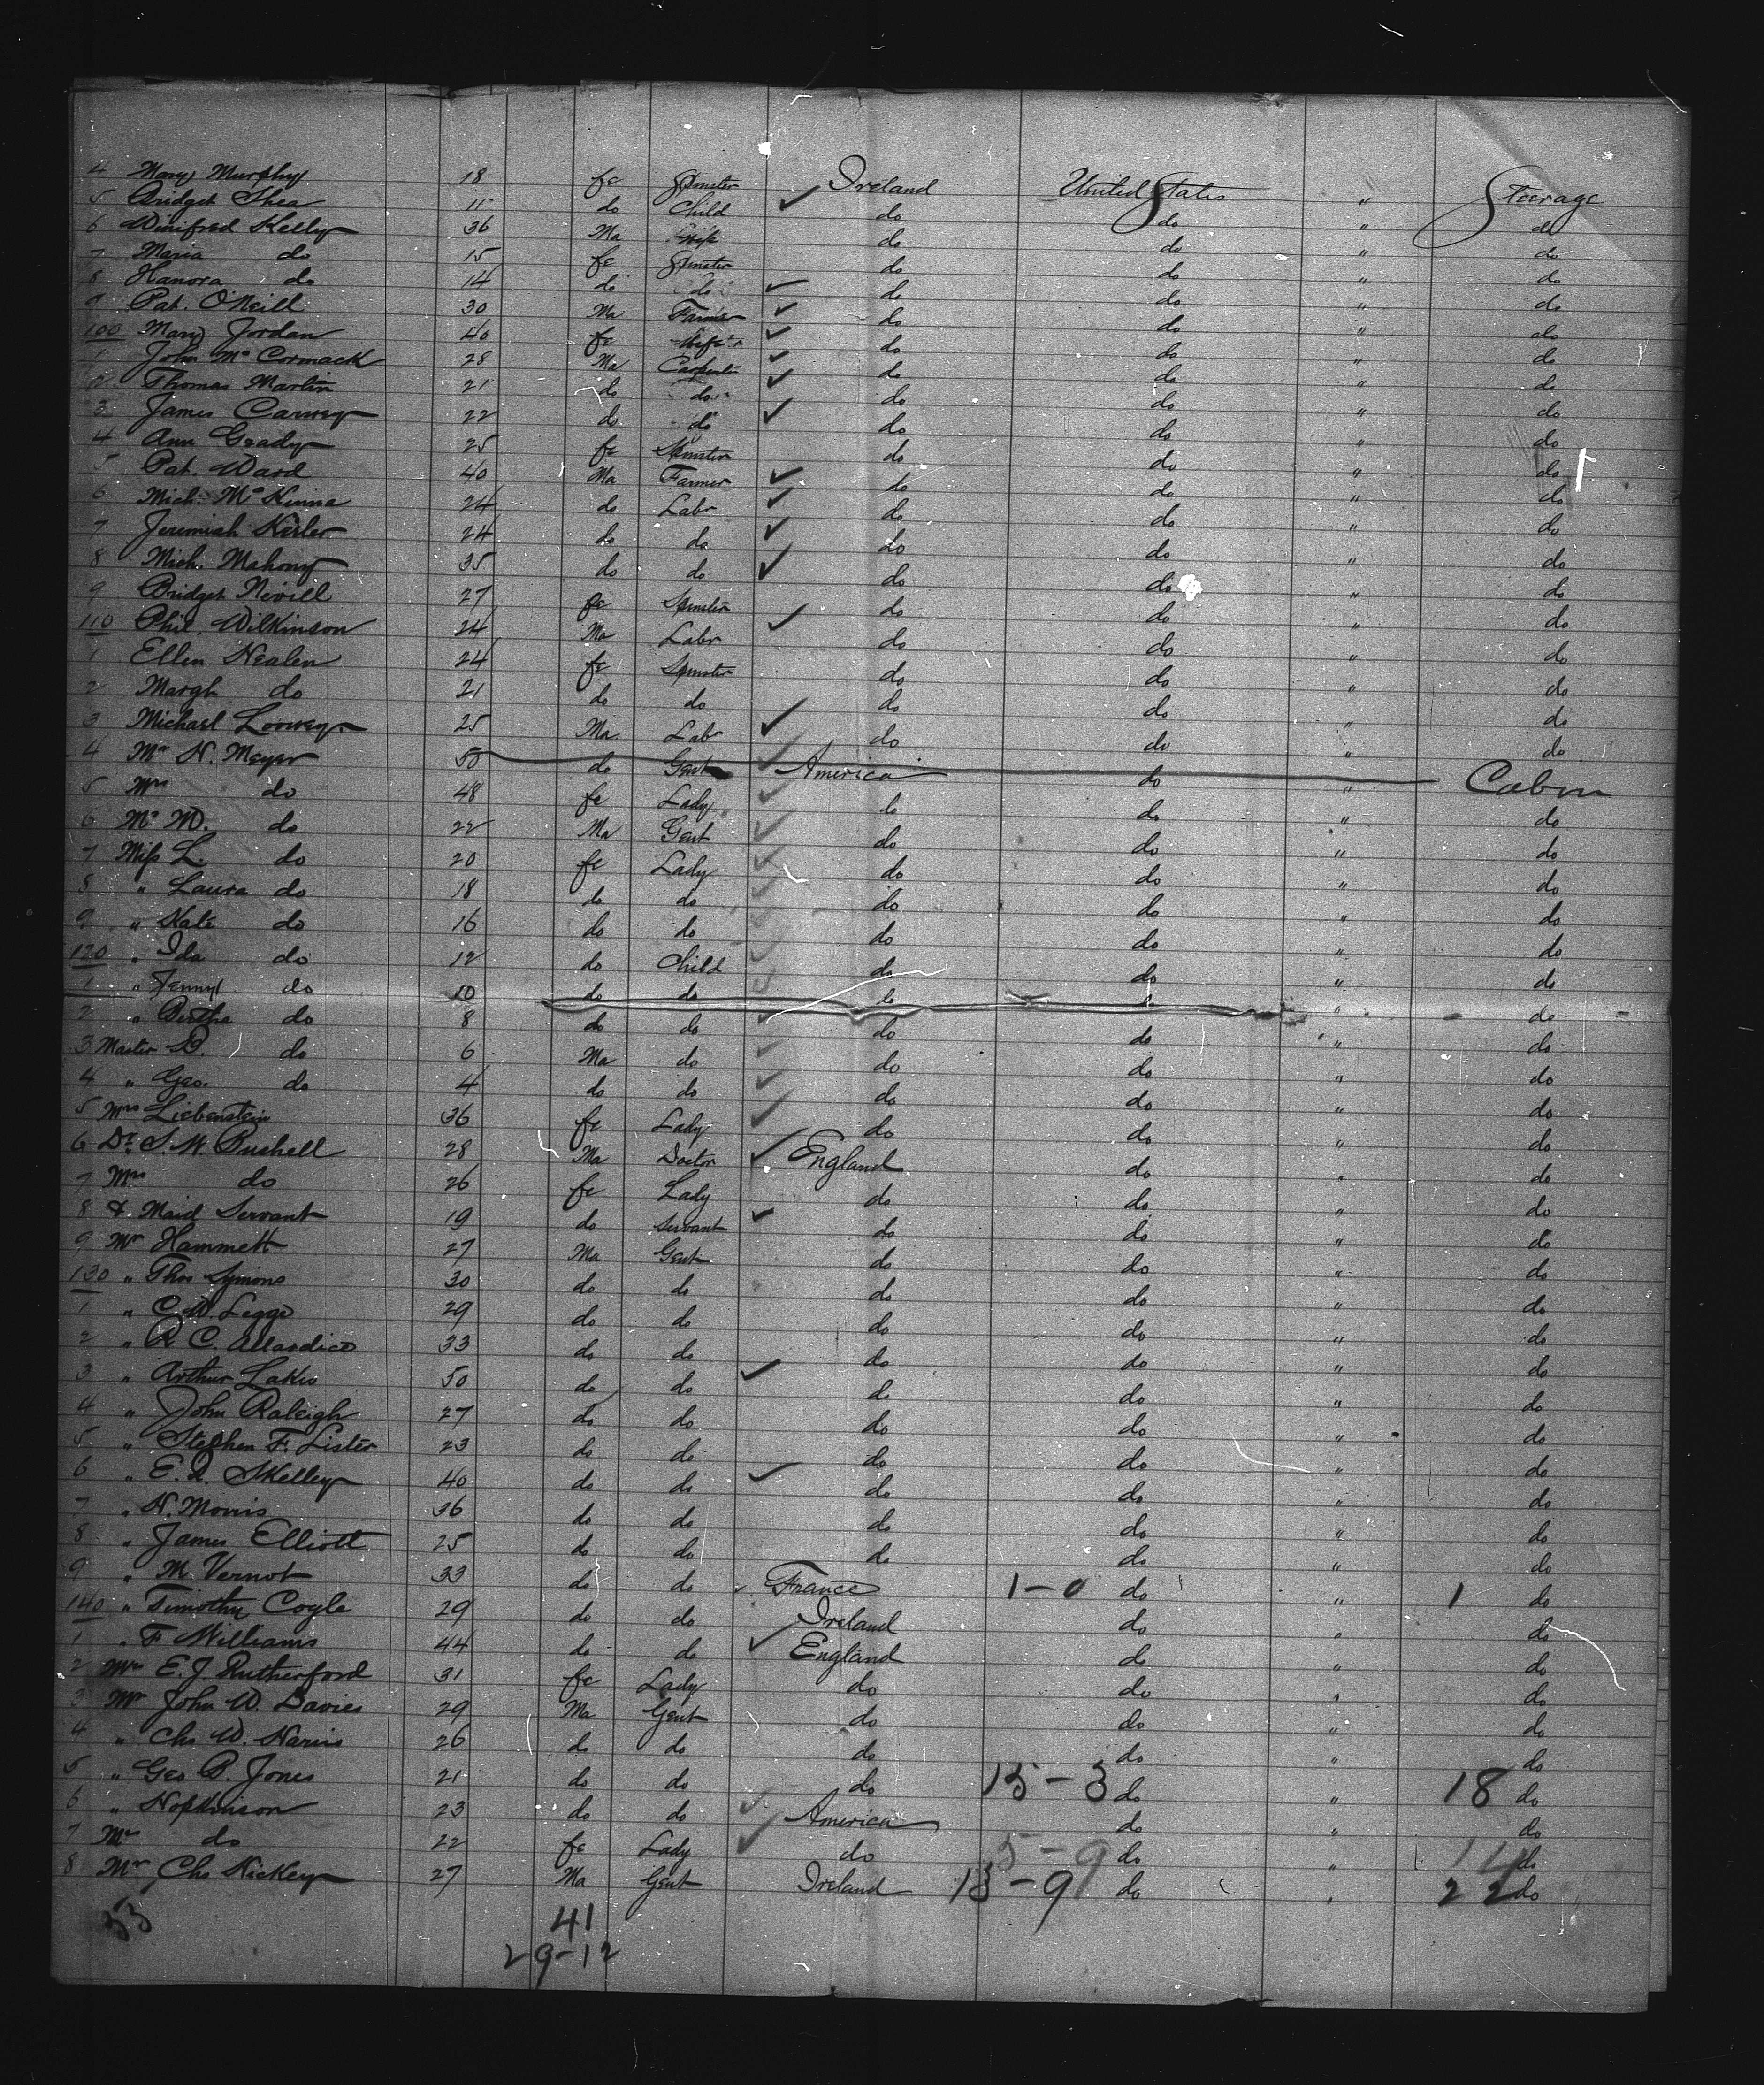 4 Mary Murphy 18 fe Spinster Ireland United States " Steerage
5 Bridget Shea 11 do Child do do " do
6 Winifred Kelly 36 Ma Wife do do " do
7 Maria do 15 fe Spinster do do " do
8 Hanora do 14 do do do do " do
9 Pat. O'Neill 30 Ma Farmer do do " do
100 Mary Jordan 40 fe Wife do do " do
1 John McCormack 28 Ma Carpenter do do " do
2 Thomas Martin 21 do do do do " do
3 James Carney 22 do do do do " do
4 Ann Grady 25 fe Spinster do do " do
5 Pat. Ward 40 Ma Farmer do do " do
6 Mich. McKinna 24 do Labr do do " do
7 Jeremiah 24 do do do do " do
8 Mich. Mahony 35 do do do do " do
9 Bridget Nevill 27 fe Spinster do do " do
110 Phil. Wilkinson 24 Ma Labr do do " do
1 Ellen Nealen 24 fe Spinster do do " do
2 Margt do 21 do do do do " do
3 Michael Looney 25 Ma Labr do do " do
4 Mr N. Meyer 50 do Gent America do " Cabin
5 Mrs do 48 fe Lady do do " do
6 Mr M. do 22 Ma Gent do do " do
7 Miss L. do 20 fe Lady do do " do
8 " Laura do 18 do do do do " do
9 " Kate do 16 do do do do " do
120 " Ida do 12 do Child do do " do
1 " Fenny do 10 do do do do " do
2 " Bertha do 8 do do do do " do
3 Master B. do 6 Ma do do do " do
4 " Geo. do 4 do do do do " do
5 Mrs Liebenstein 36 fe Lady do do " do
6 Dr. S. W. Bushell 28 Ma Doctor England do " do
7 Mrs do 26 fe Lady do do " do
8 & Maid Servant 19 do Servant do do " do
9 Mr Hammett 27 Ma Gent do do " do
130 " Thos Symons 30 do do do do " do
1 " C. W. Legge 29 do do do do " do
2 " R. C. Allardice 33 do do do do " do
3 " Arthur Lakes 50 do do do do " do
4 " John Raleigh 27 do do do do " do
5 " Stephen F. Lister 23 do do do do " do
6 " E. R. Skelley 40 do do do do " do
7 " N. Morris 36 do do do do " do
8 " James Elliott 25 do do do do " do
9 " M. Vernot 33 do do France 1-0 do " 1 do
140 " Timothy Coyle 29 do do Ireland do " do
1 " F Williams 44 do do England do " do
2 Mrs E. J. Rutherford 31 fe Lady do do " do
3 Mr John W. Davies 29 Ma Gent do do " do
4 " Chs W. Harris 26 do do do do " do
5 " Geo B. Jones 21 do do do 15-3 do " 18 do
6 " Hopkinson 23 do do America do " do
7 Mrs do 22 fe Lady do 5-9 do " 14 do
8 Mr Chs Hickey 27 Ma Gent Ireland 13-9 do " 22 do
53 41
29-12